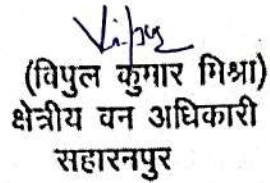 Vipul
(विपुल कुमार मिश्रा)
क्षेत्रीय वन अधिकारी
सहारनपुर